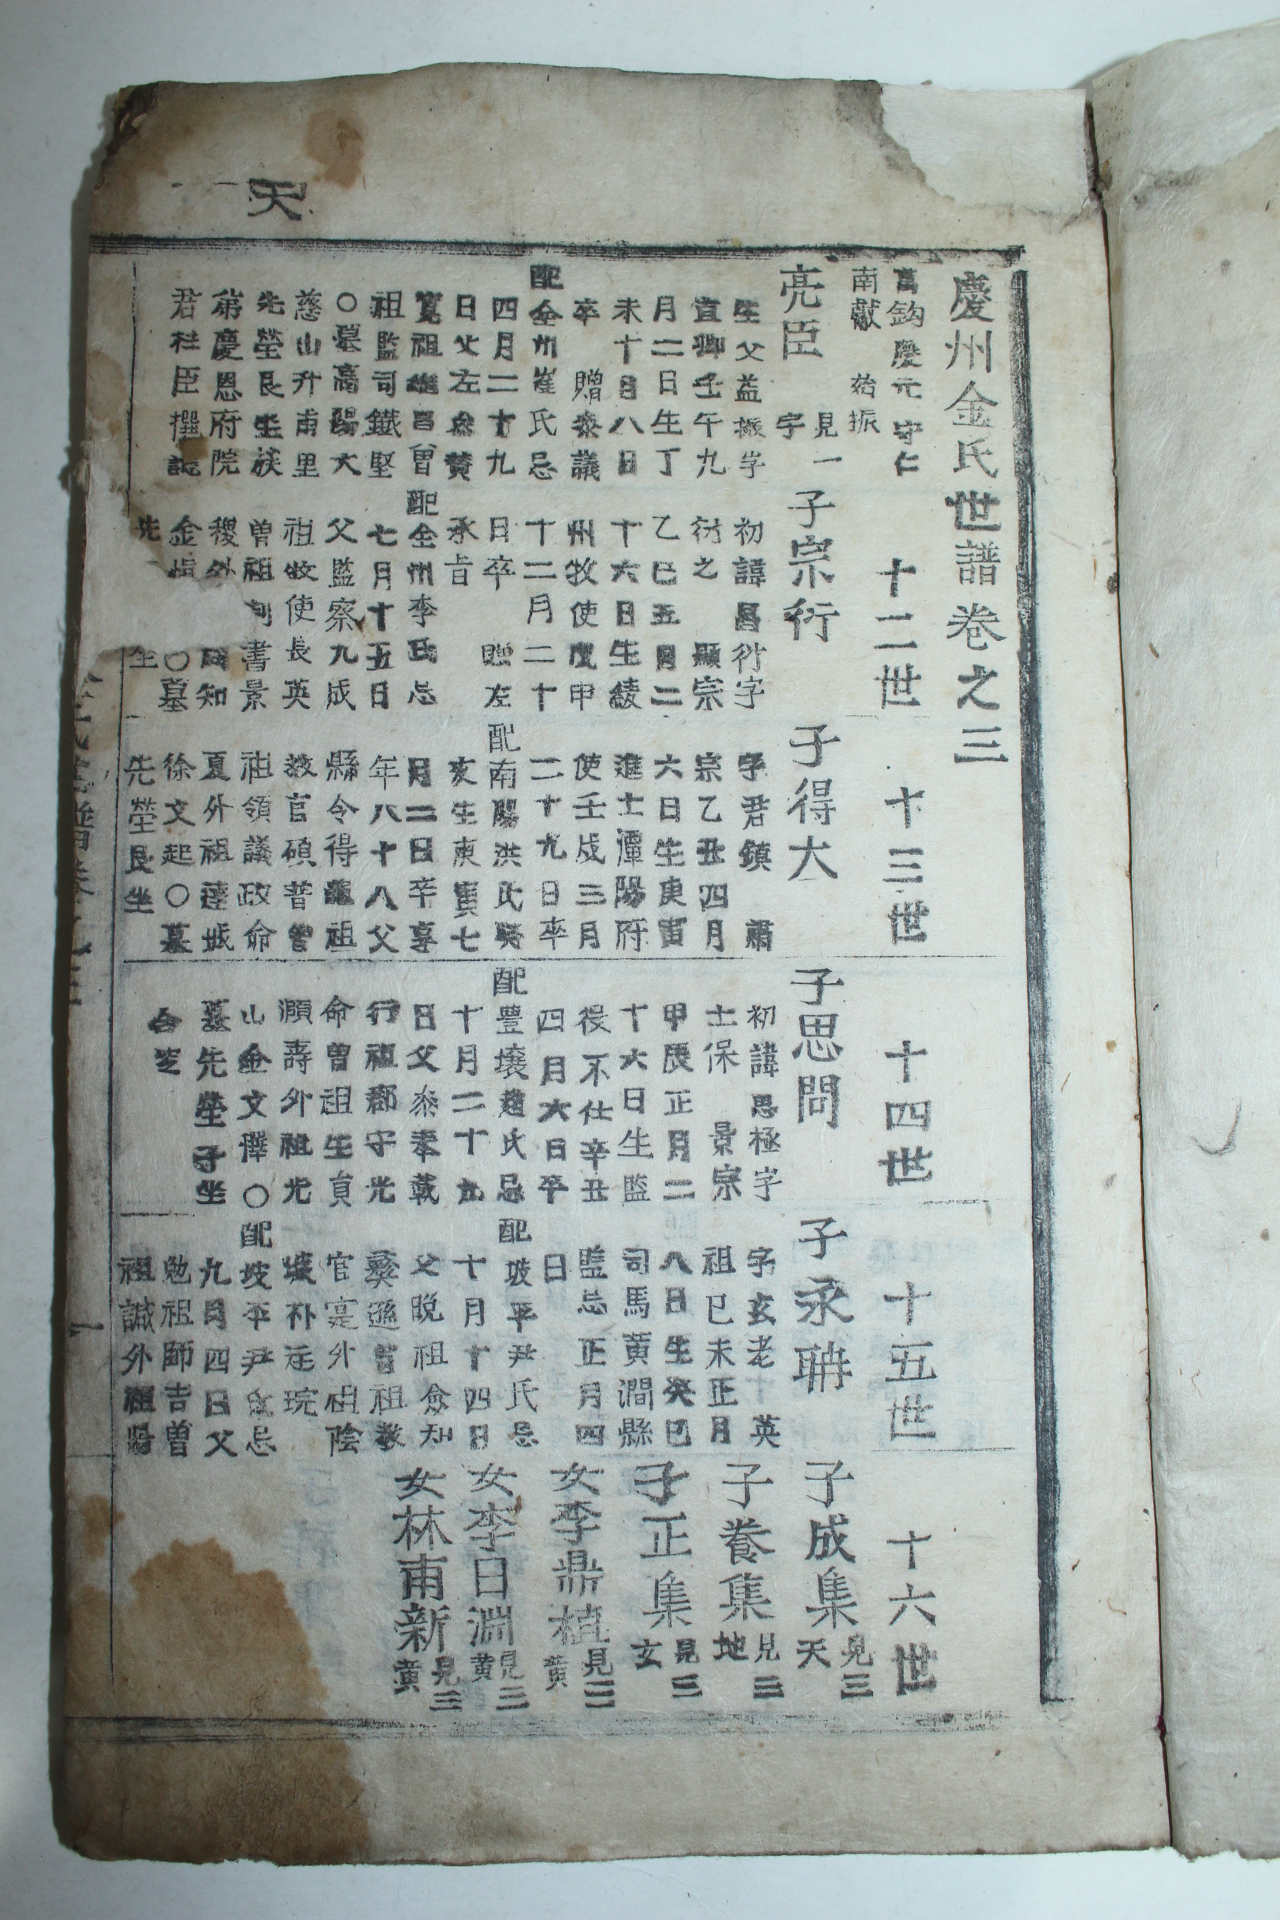 天
慶州金氏世譜卷之三
萬鈞慶元守仁
南獻 始振
十二世
十三世
十四世
十五世
十六世
亮臣
見一
字
生父益振字
直卿壬午九
月二日生丁
未十月八日
卒 贈參議
配金州崔氏忌
四月二十九
日父左參贊
寬祖 昌曾
祖監司鐵堅
〇墓高陽大
慈山升甫里
先塋艮坐族
弟慶恩府院
君柱臣撰誌
子宗衍
初諱昌衍字
衍之 顯宗
乙巳五月二
十六日生綾
州牧使 甲
十二月二十
日卒 贈左
承旨
配全州李氏忌
七月十五日
父監察九成
祖牧使長英
曾祖判書景
稷外 知
金 〇墓
先 坐
子得大
字君鎮 肅
宗乙丑四月
六日生庚寅
進士潭陽府
使壬戌三月
二十九日卒
配南陽洪氏癸
亥生庚寅七
月二日卒享
年八十八父
縣令得龜祖
教官碩普曾
祖領議政命
夏外祖達城
徐文起〇墓
先塋艮坐
子思問
初諱思極字
士保 景宗
甲辰正月二
十六日生監
役不仕辛丑
四月六日卒
配豊壤趙氏忌
十月二十九
日父參奉載
行祖郡守光
命曾祖生員
灝壽外祖光
山金文澤〇
墓先塋子坐
合窆
子永聃
字玄老 英
祖己未正月
八日生癸巳
司馬黃澗縣
監忌正月四
日
配坡平尹氏忌
十月十四日
父晩祖僉知
彝遜曾祖教
官寔外祖陰
城朴廷琬
配坡平尹氏忌
九月四日父
勉祖師吉曾
祖誠外祖陽
子成集
見三
天
子養集
見三
地
子正集
見三
玄
女李鼎植
見三
黃
女李日淵
見三
黃
女林甫新
見三
黃
金氏世譜卷之三
一